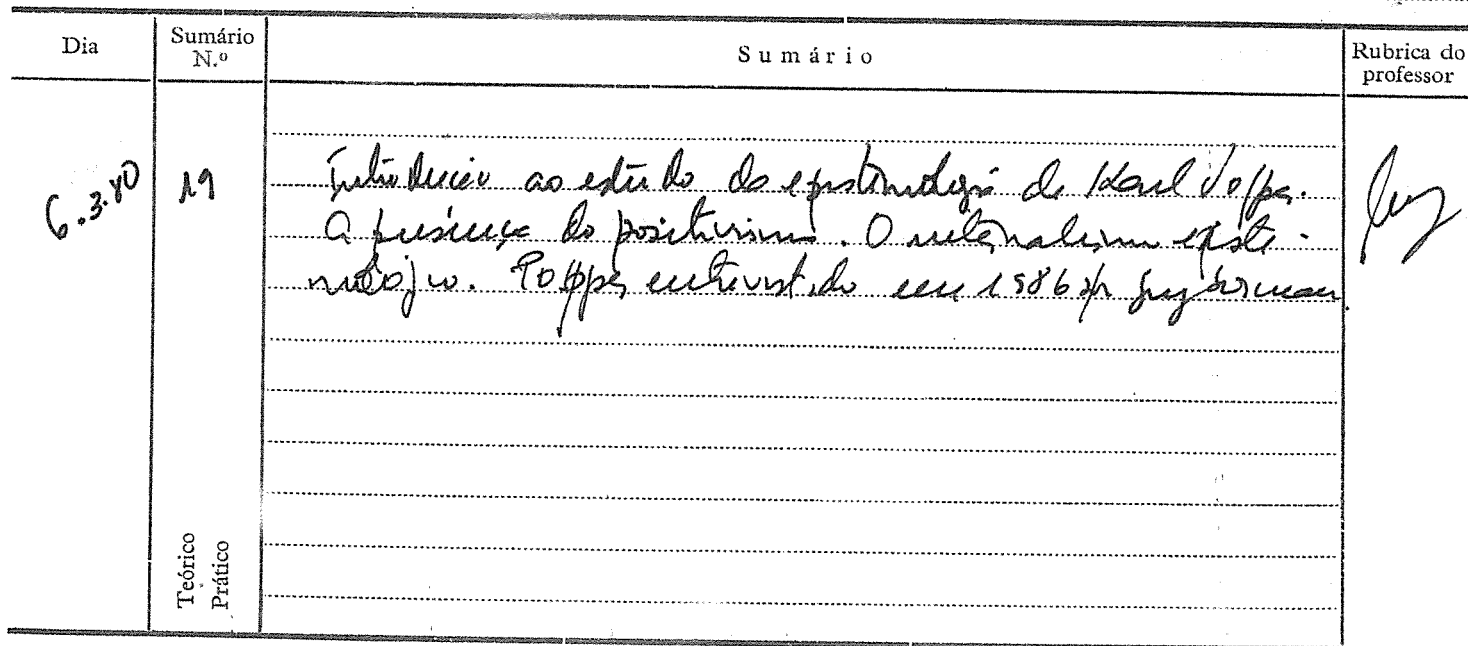 Dia
Sumário N.º
Sumário
Rubrica do professor
6.3.80
19
Introdução ao estudo da epistemologia de Karl Popper.
A presença do positivismo. O racionalismo episte-
mológico. Popper entrevistado em 1986
Teórico
Prático